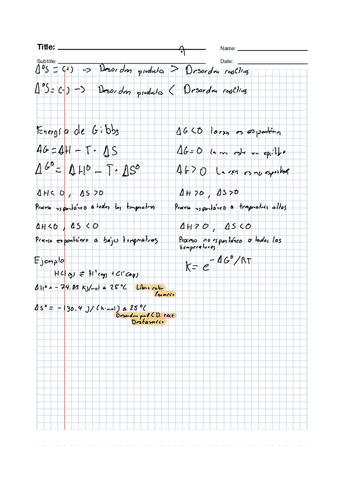 Title:
Name:
Subtitle:
Date:
Δ°S = (+) → Desorden productos > Desorden reactivos
Δ°S = (-) → Desorden productos < Desorden reactivos
Energía de Gibbs
ΔG = ΔH - T · ΔS
ΔG° = ΔH° - T · ΔS°
ΔG < 0 la rxn es espontánea
ΔG = 0 la rxn está en equilibrio
ΔG > 0 La rxn es no espontánea
ΔH < 0 , ΔS > 0
Proceso espontáneo a todas las temperaturas
ΔH > 0 , ΔS > 0
Proceso espontáneo a temperaturas altas
ΔH < 0 , ΔS < 0
Proceso espontáneo a bajas temperaturas
ΔH > 0 , ΔS < 0
Proceso no espontáneo a todas las
temperaturas
Ejemplo
HCl(g) ⇌ H⁺(aq) + Cl⁻(aq)
K = e^-ΔG°/RT
ΔH° = -74.85 KJ/mol a 25°C Libera calor
favorece
ΔS° = -130.4 J/(K·mol) a 25°C
Desorden
Desfavorece